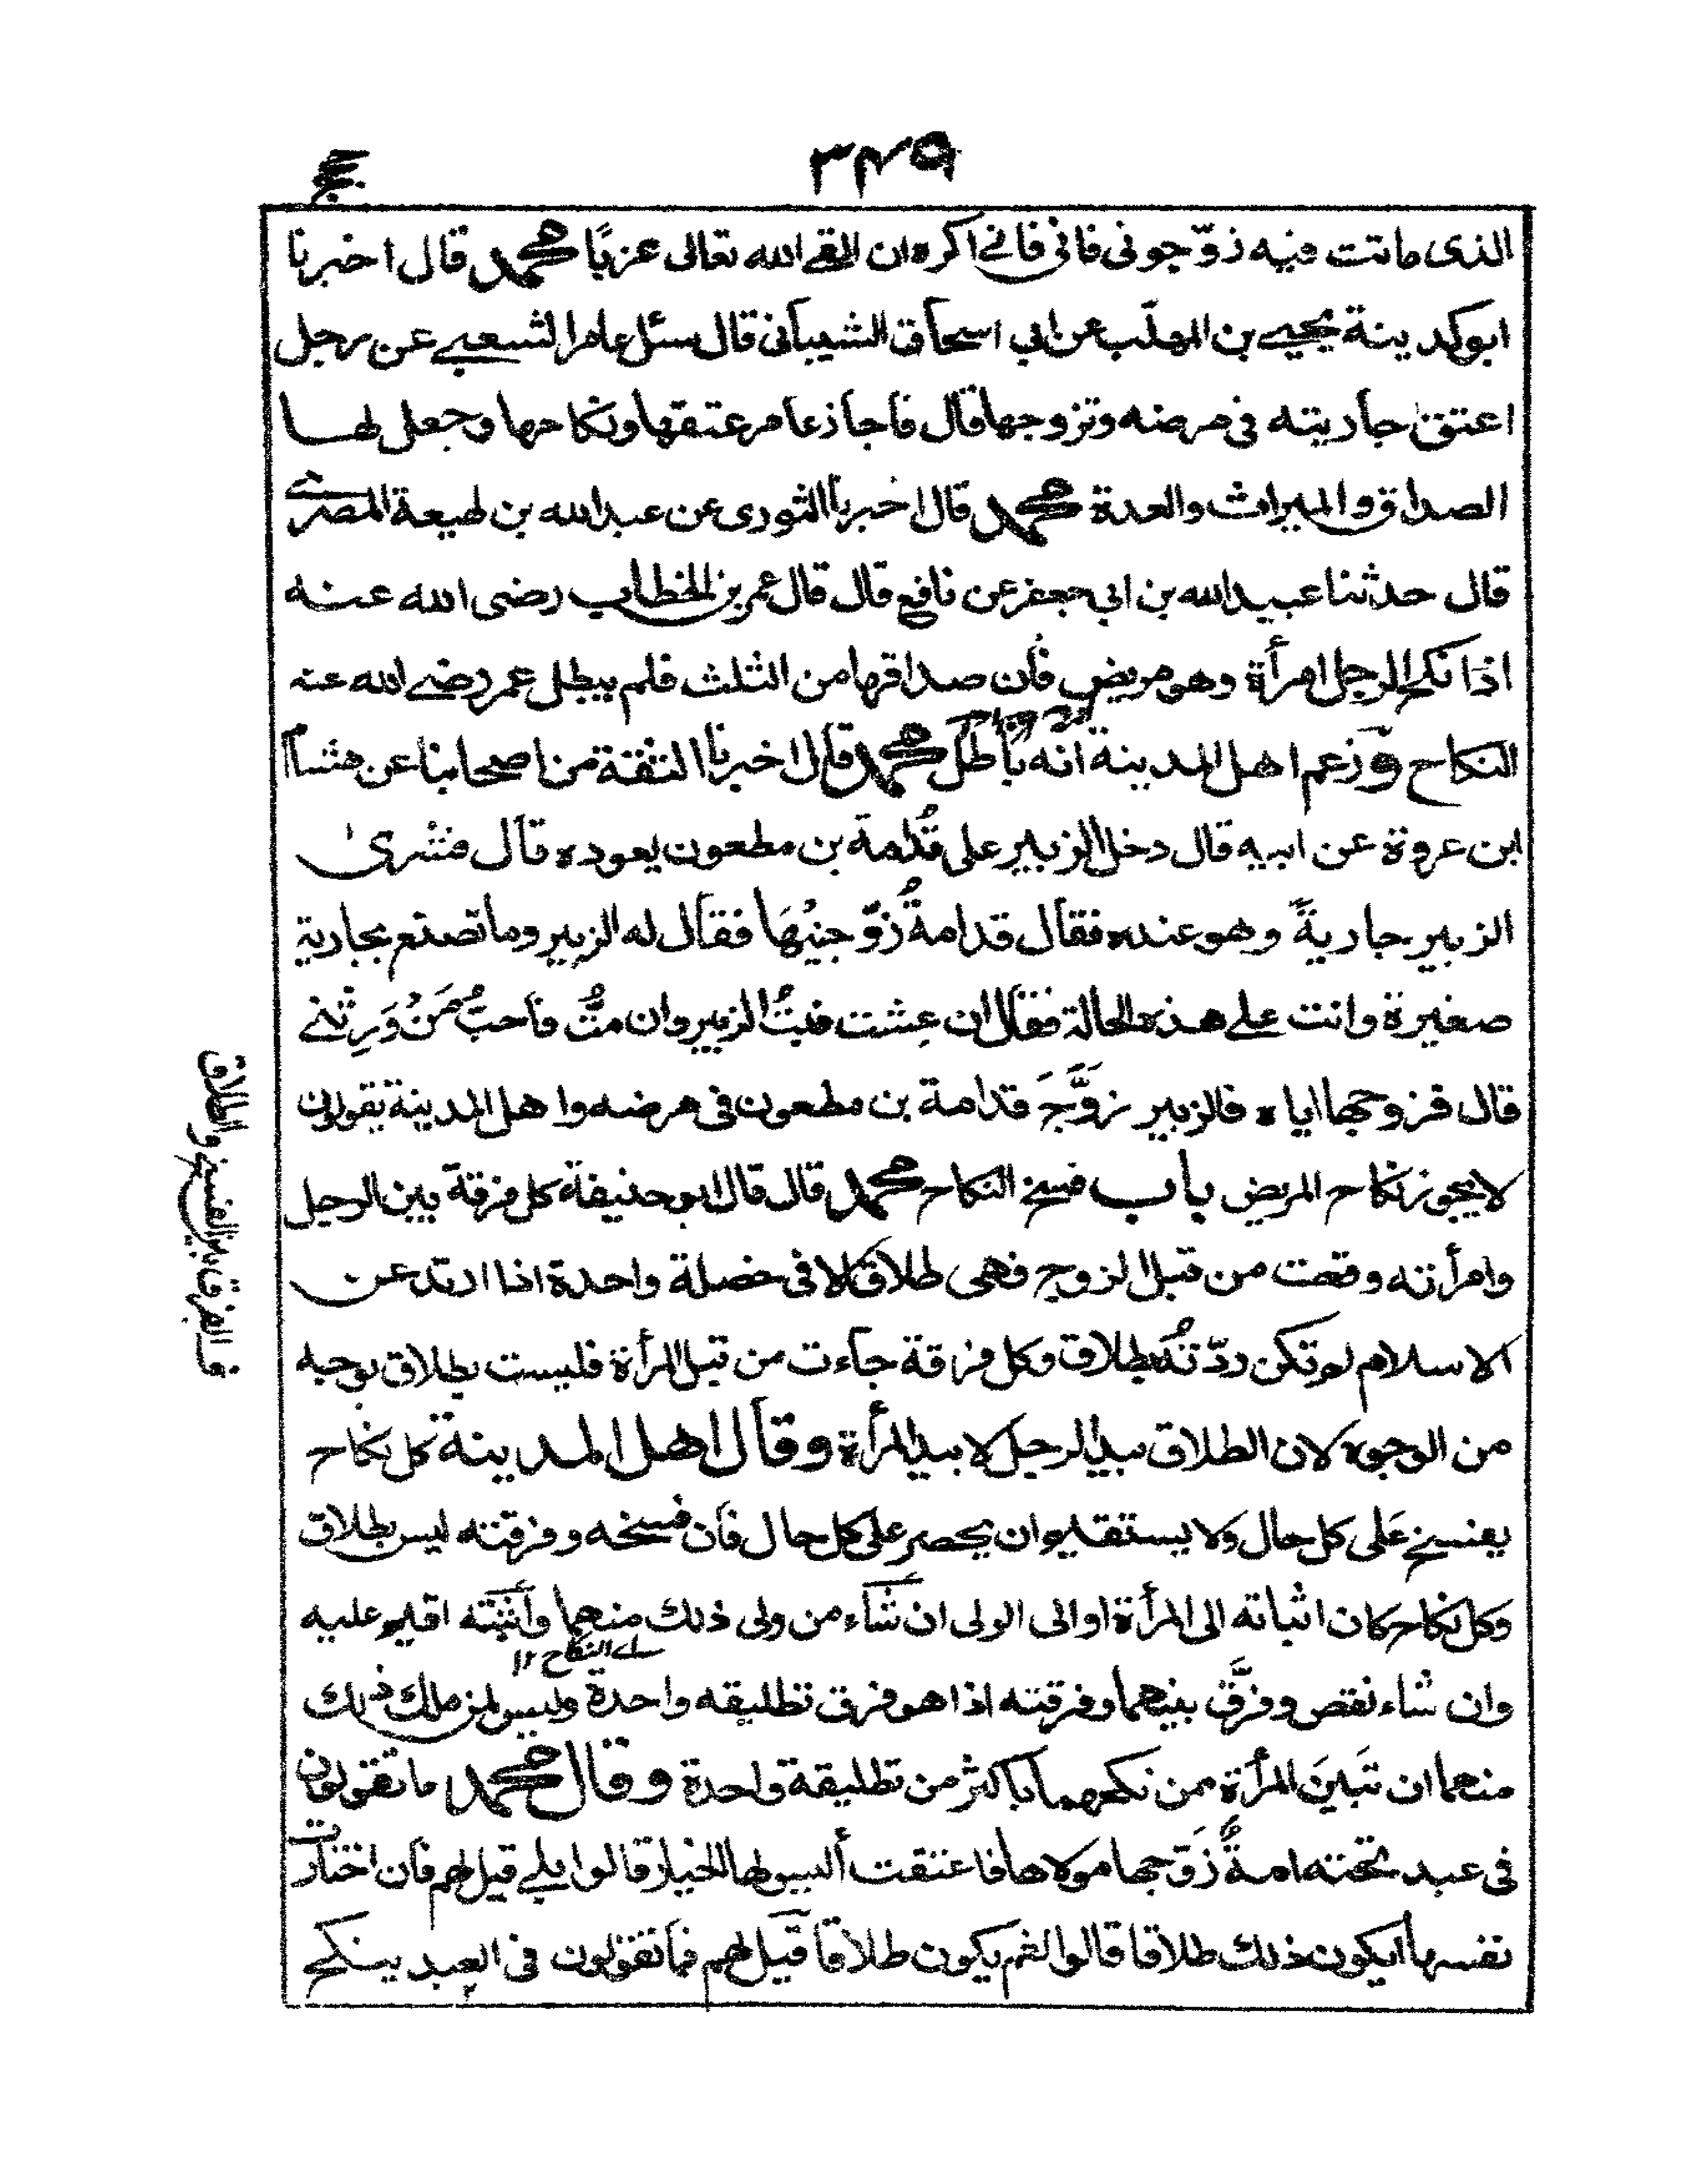 ٣٤٩
الذى ماتت فيه زوّجونى فانى فانے اكره ان القے الله تعالى عزبًا محمد قال اخبرنا
ابوكدينة يحيے بن المهلّب عن ابي اسحاق الشيبانى قال سئل عامر الشعبے عن رجل
اعتق جاريته فى مرضه وتزوجها قال فاجاز عامر عتقها ونكاحها وجعل لها
الصداق والميراث والعدة محمد قال اخبرنا الثورى عن عبدالله بن لهيعة المصرے
قال حدثنا عبيدالله بن ابي جعفر عن نافع قال قال عمر بن الخطاب رضى الله عنه
اذا نكح الرجل امرأة وهو مريض فان صداقها من الثلث فلم يبطل عمر رضے الله عنه
النكاح وزعم اهل المدينة انه باطل محمد قال اخبرنا الثقة من اصحابنا عن هشام
ابن عروة عن ابيه قال دخل الزبير على قُدامة بن مظعون يعوده قال فبشرىٰ
الزبير بجاريةً وهو عنده فقال قدامةُ زوّجنيْهَا فقال له الزبير وما تصنع بجارية
صغيرة وانت علے هذه الحالة فقال ان عِشت فبنتُ الزبير وان متُّ فاحبُّ مَنْ وَرِثَنے
قال فزوجها اياه فالزبير زوَّجَ قدامة بن مظعون فى مرضه واهل المدينة يقولون
لا يجوز نكاح المريض باب فسخ النكاح محمد قال قال ابو حنيفة كل فرقة بين الرجل
وامرأته وقعت من قبل الزوج فهى طلاق الا فى خصلة واحدة اذا ارتد عن
الاسلام لم تكن ردّتُه بطلاق وكل فرقة جاءت من قبل المرأة فليست بطلاق بوجه
من الوجوه لان الطلاق بيد الرجل لا بيد المرأة وقال اهل المدينة كل نكاح
يفسخ على كل حال ولا يستقيم ان يحصر على كل حال فان فسخه وفرقته ليس بطلاق
وكل نكاح كان اثباته الى المرأة او الى الولى ان شاء من ولى ذلك منهما وأثبته اقيم عليه
اے النكاح ١٢
وان شاء نقض وفرَّق بينهما وفرقته اذا هو فرق تطليقه واحدة وليس لمن ملك ذلك
منهما ان تَبينَ المرأة ممن نكحهما بأكثر من تطليقة واحدة وقال محمد ما تقولون
فى عبد تحته امةٌ زوّجها مولاها فاعتقت أليس لها الخيار قالوا بلے قيل لهم فان اختارت
نفسها ايكون ذلك طلاقا قالوا نعم يكون طلاقا قيل لهم فما تقولون فى العبد ينكح
فے الفرق بين الفسخ والطلاق